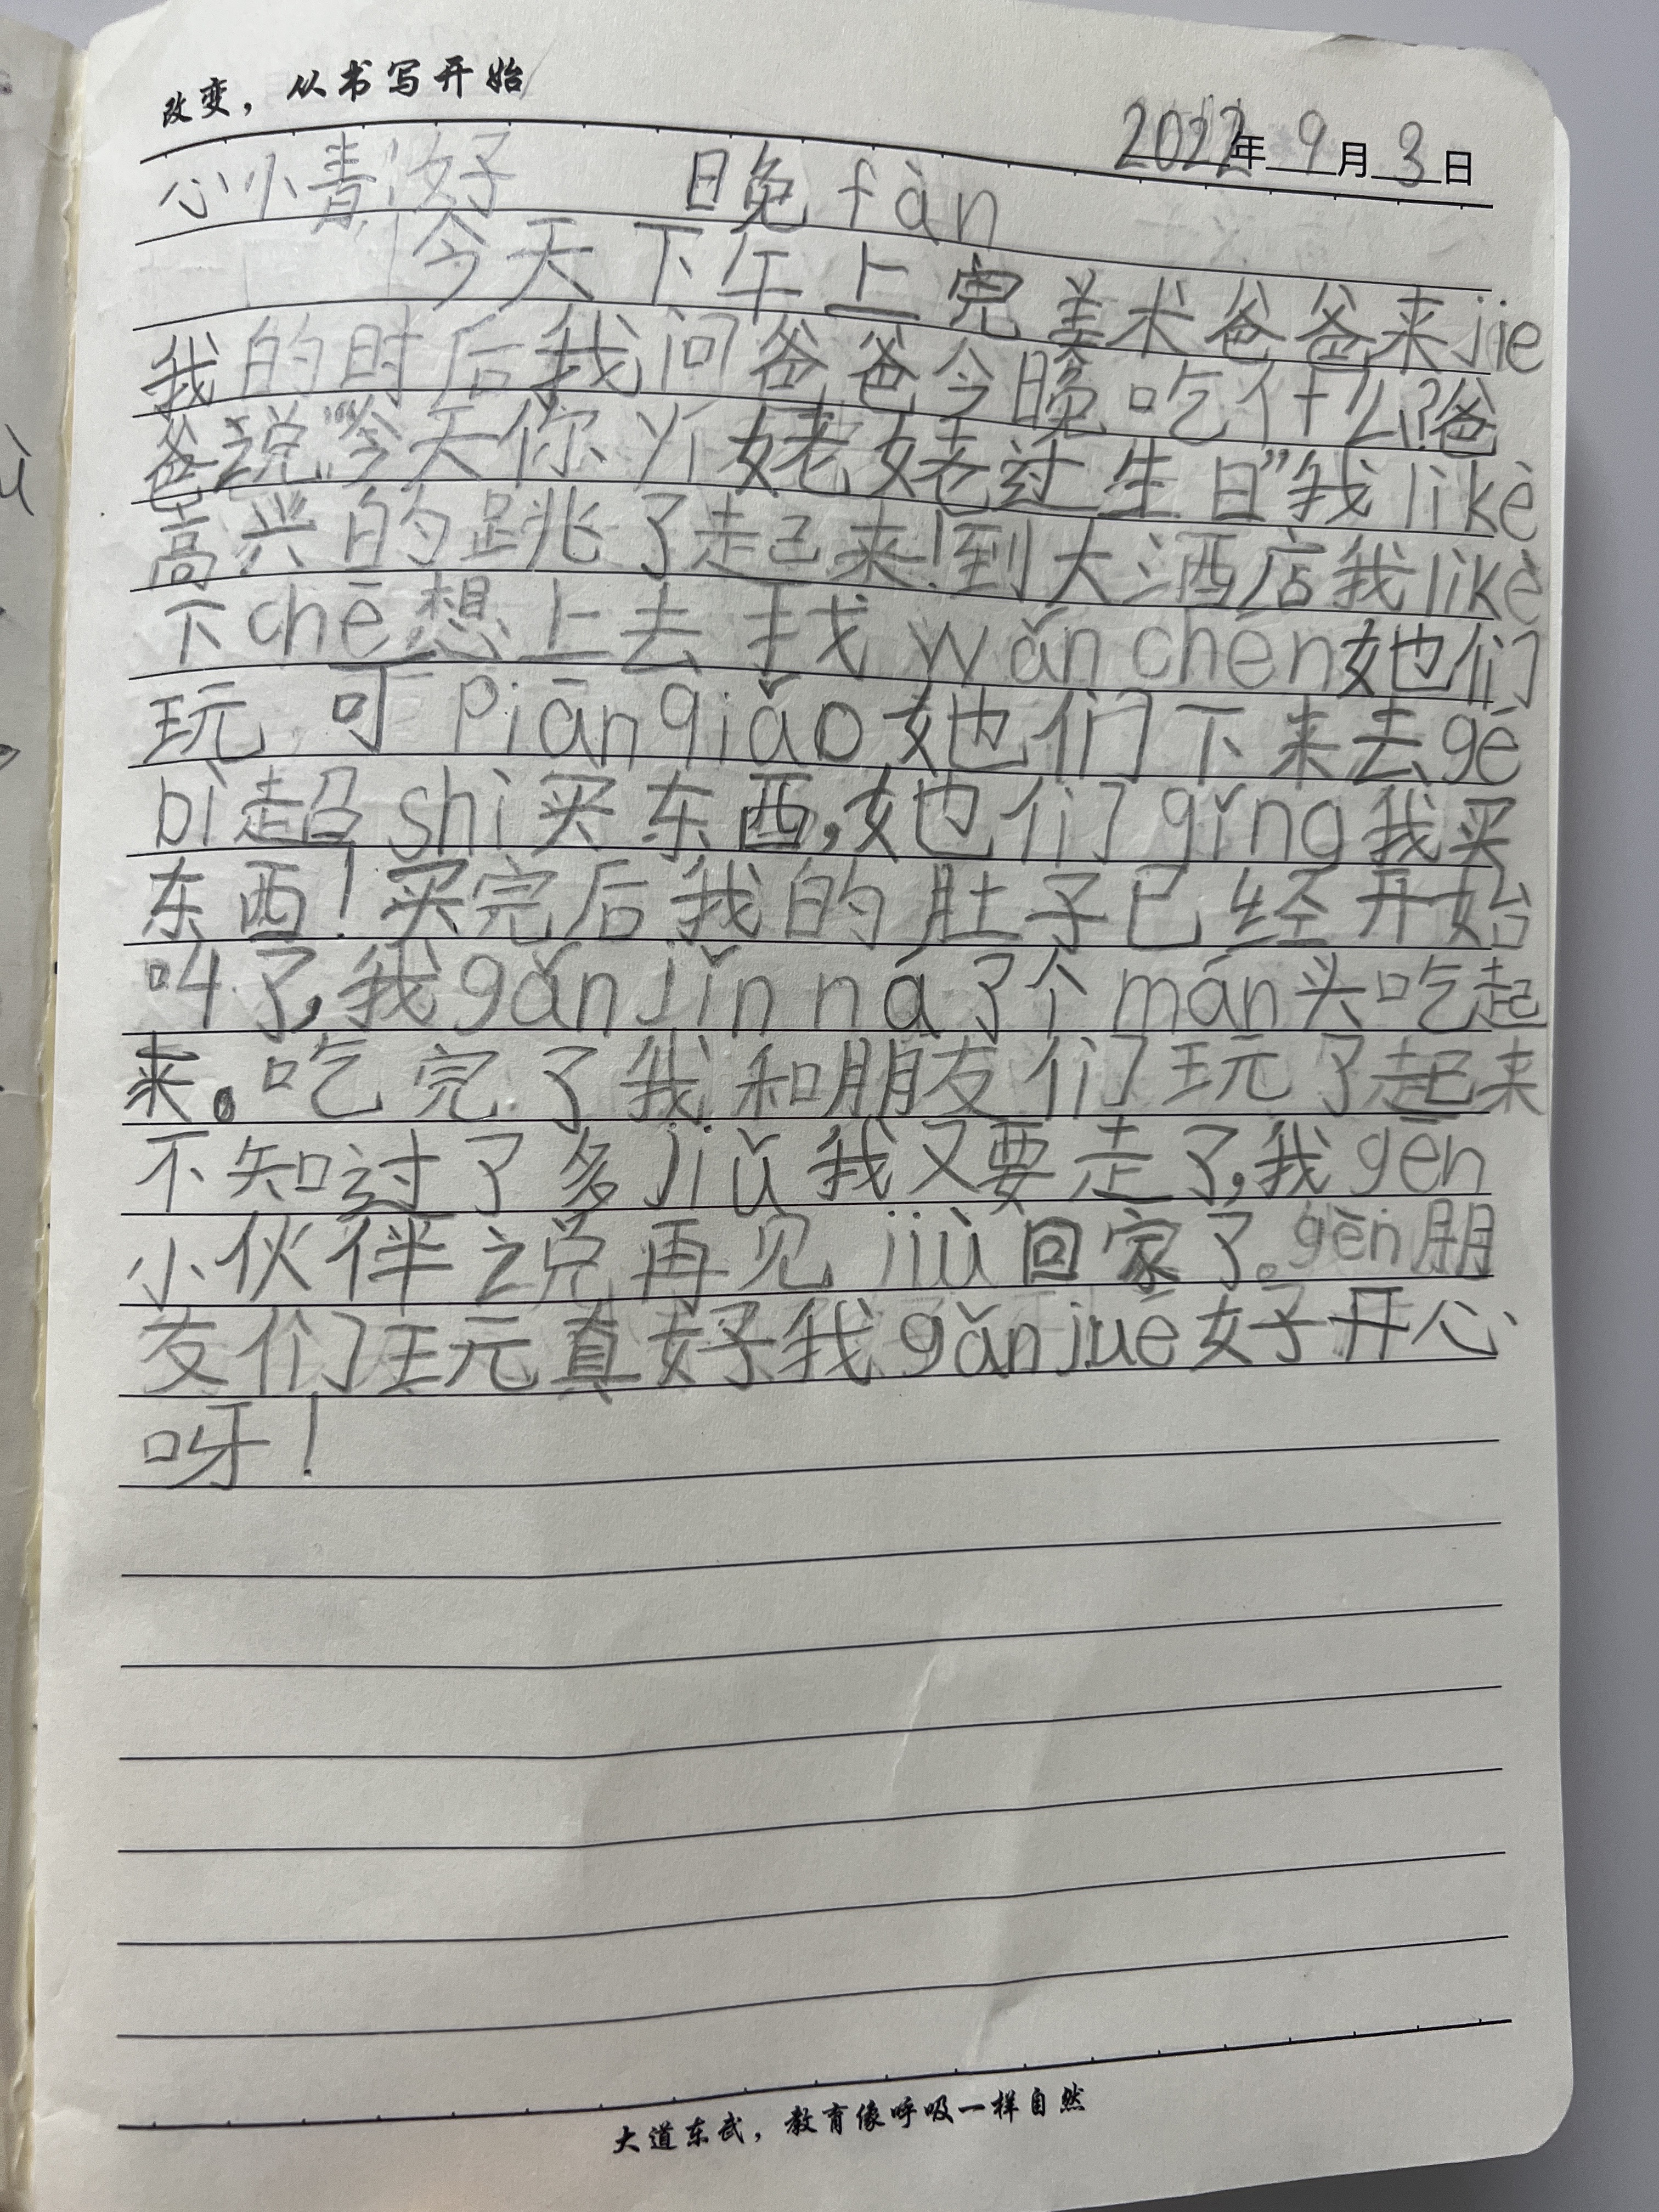 改变，从书写开始
2022年9月3日
心小 晚fàn
今天下午上完美术爸爸来jie
我的时后我问爸爸今晚吃什么?爸
爸说“今天你 姥姥过生日”我likè
高兴的跳了起来!到大酒店我likè
下chē想上去找wǎnchen她们
玩，可piānqiǎo她们下来去gé
bì超shì买东西,她们qǐng我买
东西!买完后我的肚子已经开始
叫了,我gǎnjǐnná了个mán头吃起
来。吃完了我和朋友们玩了起来
不知过了多jiǔ我又要走了,我gēn
小伙伴说再见jiù回家了。gēn朋
友们玩真好我gǎnjué好开心
呀!
大道东武，教育像呼吸一样自然